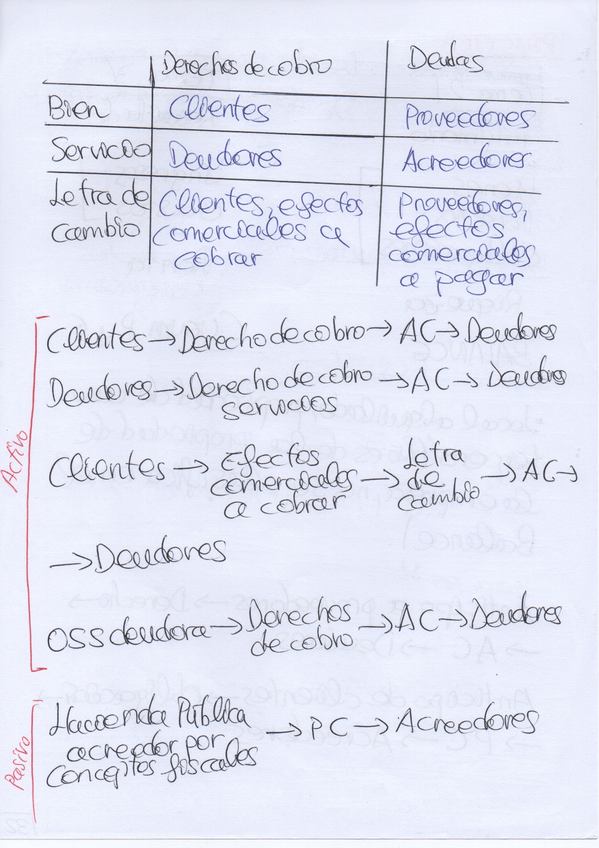 Derechos de cobro Deudas
Bien Clientes Proveedores
Servicio Deudores Acreedores
Letra de Clientes, efectos Proveedores,
cambio comerciales a efectos
cobrar comerciales
a pagar
Clientes → Derecho de cobro → AC → Deudores
Deudores → Derecho de cobro → AC → Deudores
servicios
Clientes → Efectos Letra
comerciales → de → AC →
a cobrar cambio
→ Deudores
OSS deudora → Derechos → AC → Deudores
de cobro
Activo
Hacienda Pública
acreedor por → PC → Acreedores
conceptos fiscales
Pasivo